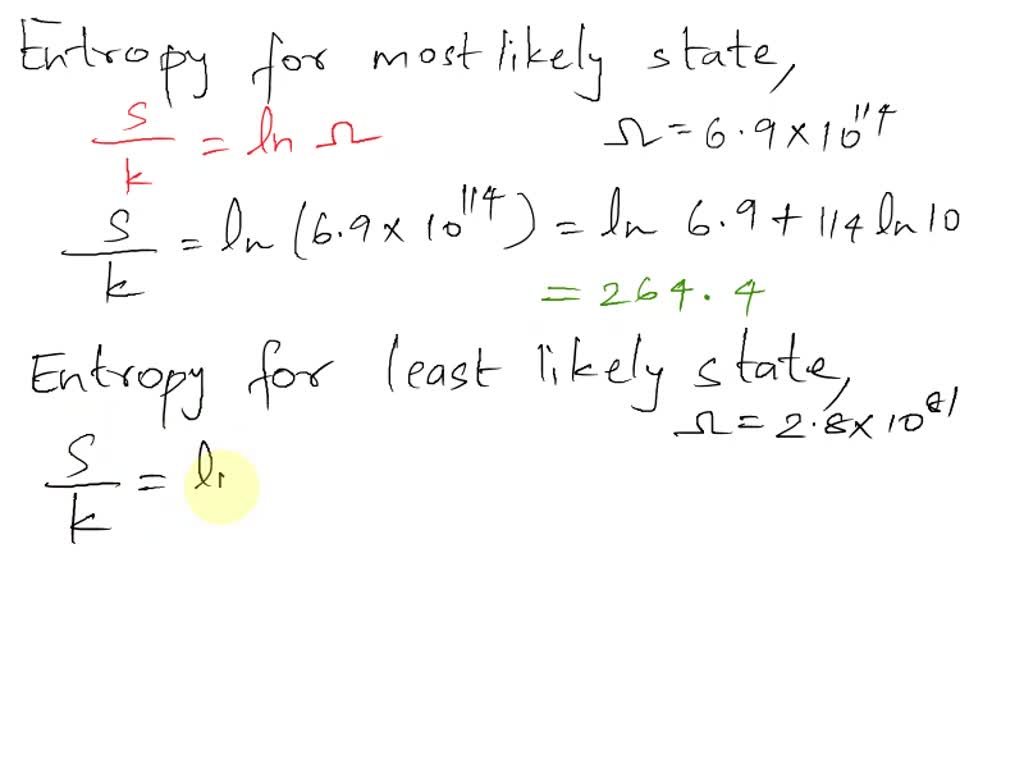 Entropy for most likely state,
S/k = ln Ω Ω = 6.9 × 10^114
S/k = ln (6.9 × 10^114) = ln 6.9 + 114 ln 10
= 264.4
Entropy for least likely state,
Ω = 2.8 × 10^81
S/k = ln